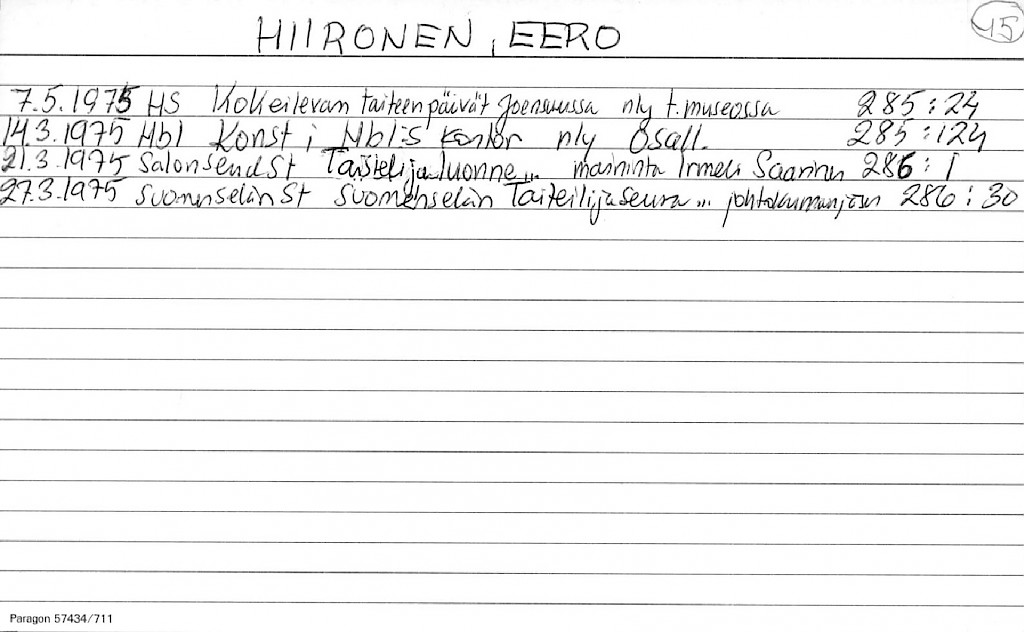 HIIRONEN, EERO
15
7.5.1975 HS Kokeilevan taiteen päivät Joensuussa nly t.museossa 285:24
14.3.1975 Hbl Konst i Hbl:s kontor nly Osall. 285:124
21.3.1975 SalonSeudSt Taistelijaluonne... maininta Irmeli Saarinen 286:1
27.3.1975 SuomenselänSt Suomenselän Taiteilijaseura... 286:30
Paragon 57434/711